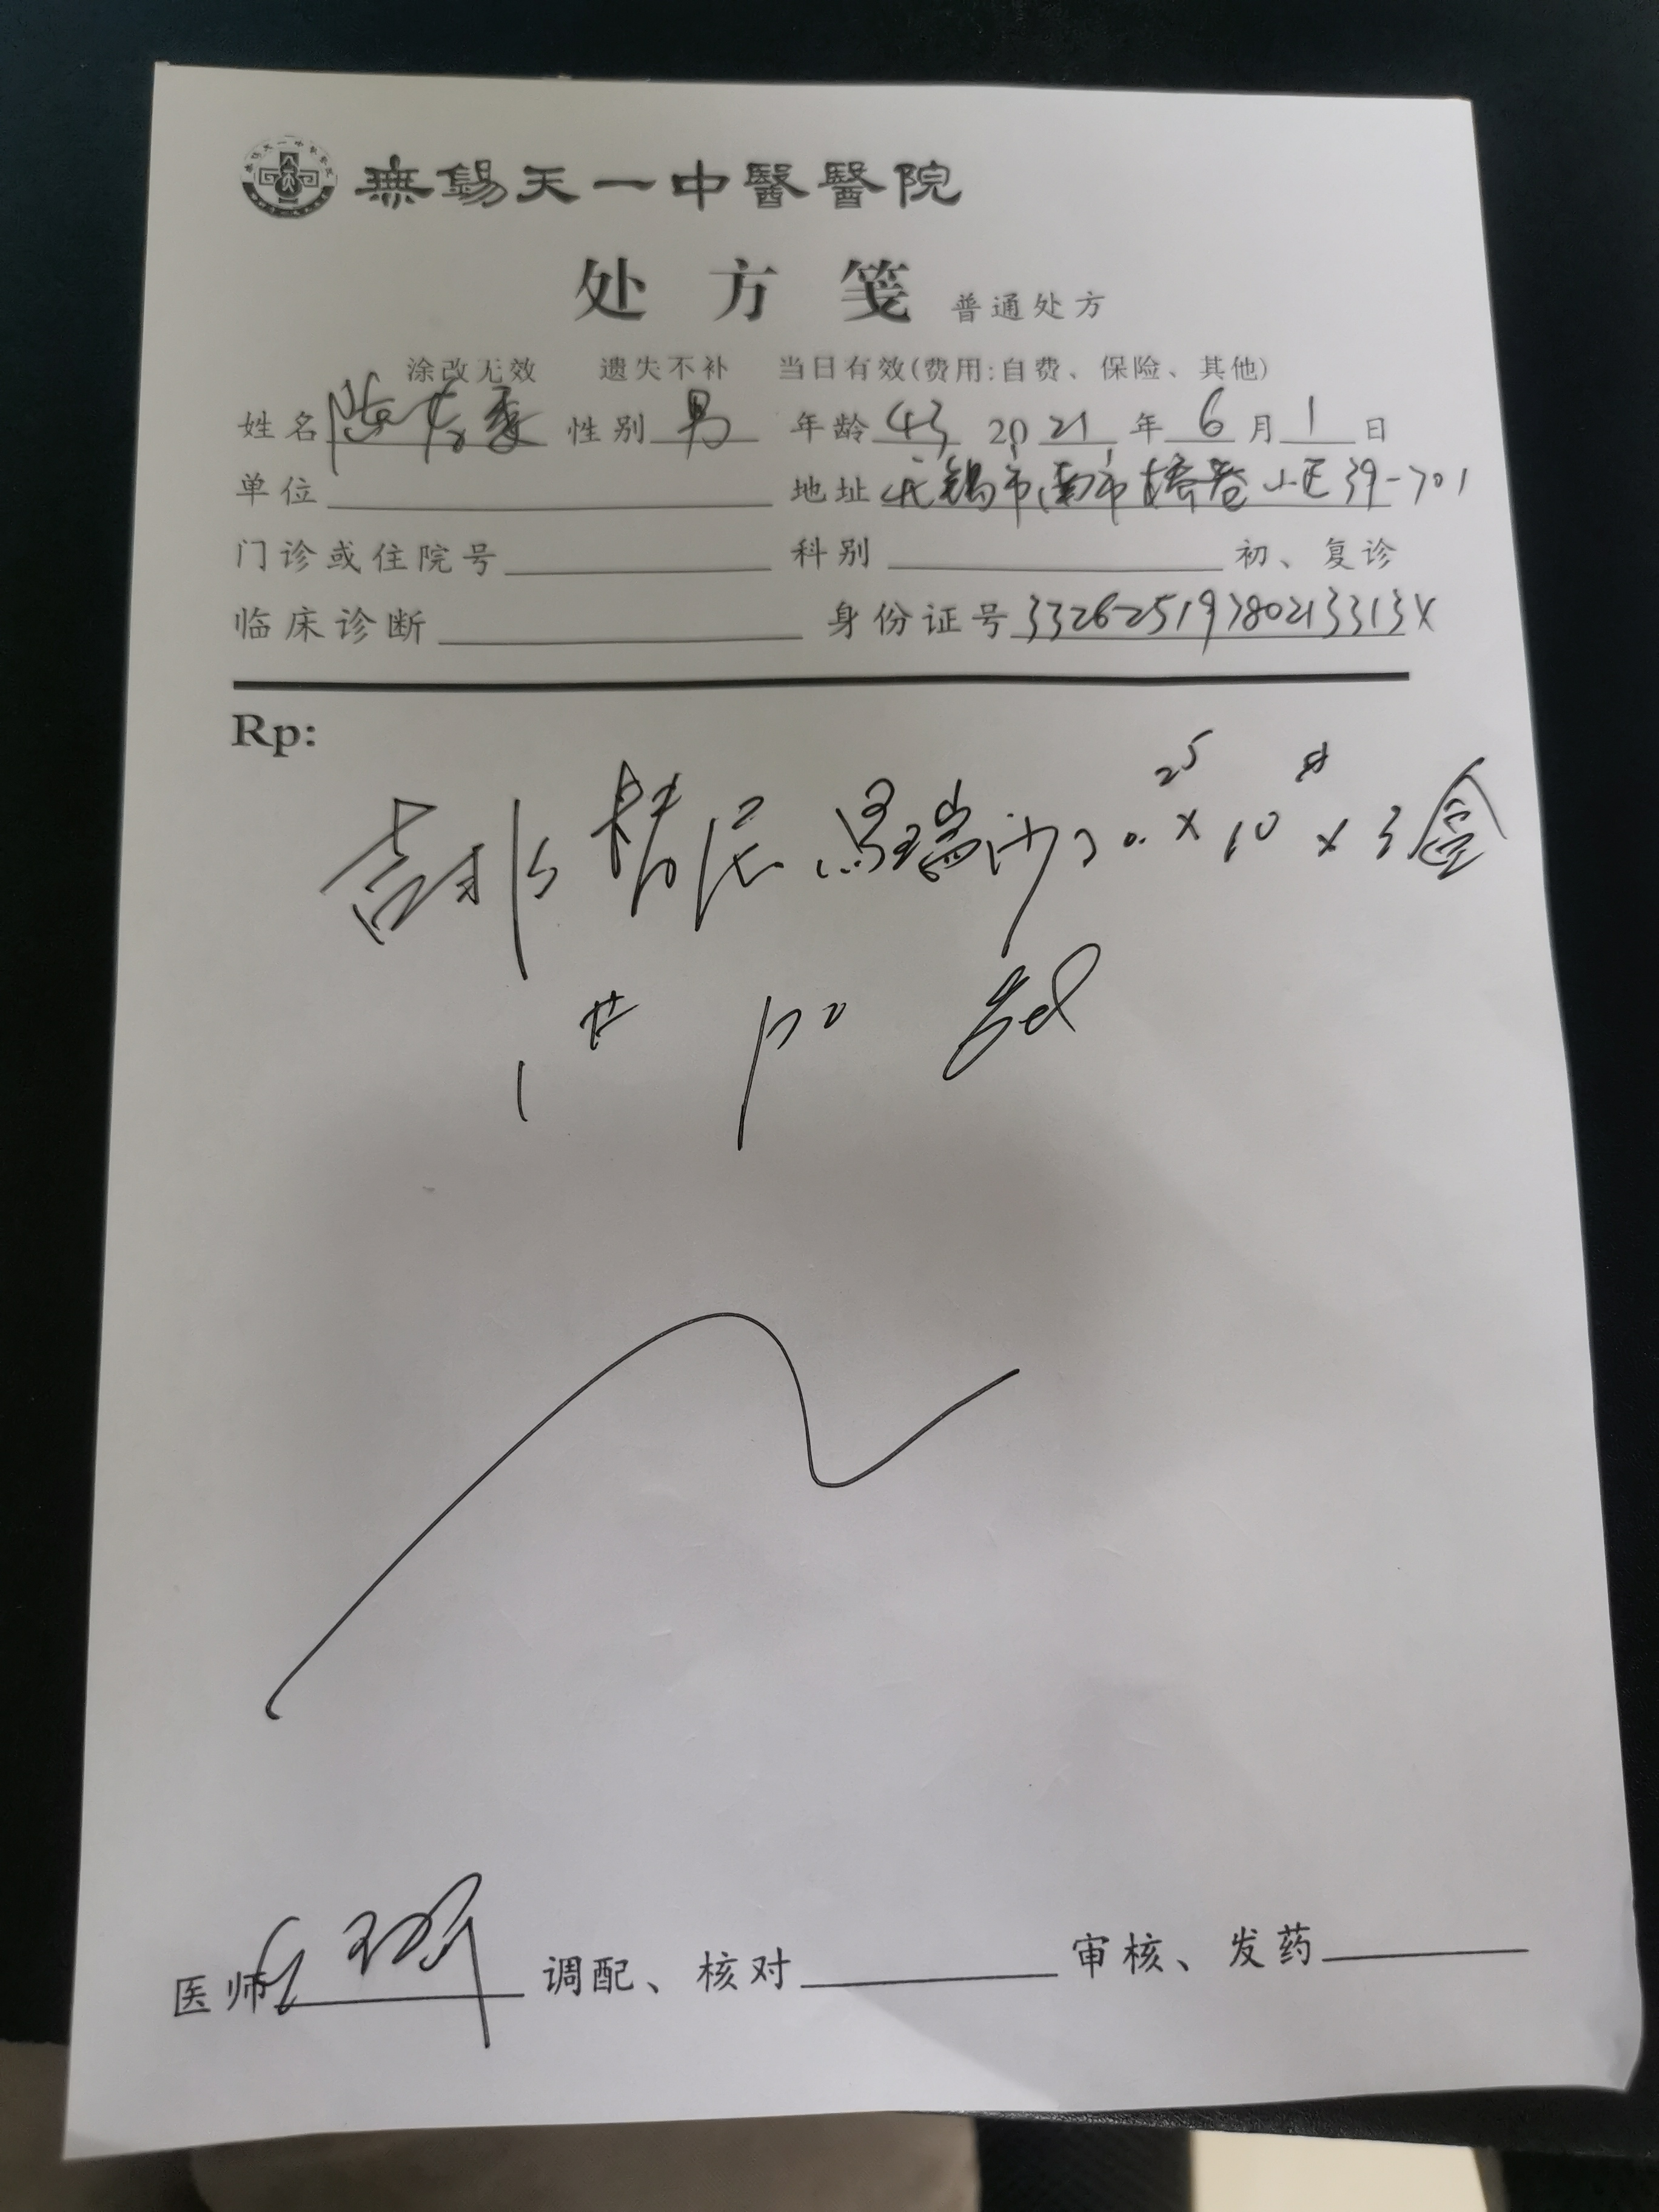 無錫天一中醫醫院
处方笺 普通处方
涂改无效 遗失不补 当日有效(费用:自费、保险、其他)
姓名 陈 性别 男 年龄 43 2021年6月1日
单位 地址 无锡市南市桥巷小区39-701
门诊或住院号 科别 初、复诊
临床诊断 身份证号 33262519780213313X
Rp:
吉非替尼 易瑞沙 0.25×10#×3盒
1# po qd
医师 调配、核对 审核、发药